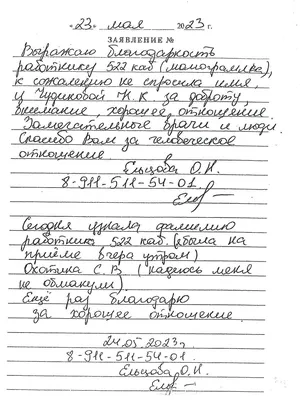 « 23 » мая 2023 г.
ЗАЯВЛЕНИЕ №
Выражаю благодарность
работнику 522 каб (маммография),
к сожалению не спросила имя,
и Чудиковой Н.К. за доброту,
внимание, хорошее отношение.
Замечательные врачи и люди.
Спасибо Вам за человеческое
отношение
Ельцова О.И.
8-911-511-54-01
Сегодня узнала фамилию
работника 522 каб. (была на
приёме вчера утром)
Охотина С.В (надеюсь меня
не обманули).
Ещё раз благодарю
за хорошее отношение.
24.05.2023г.
8-911-511-54-01.
Ельцова О.И.